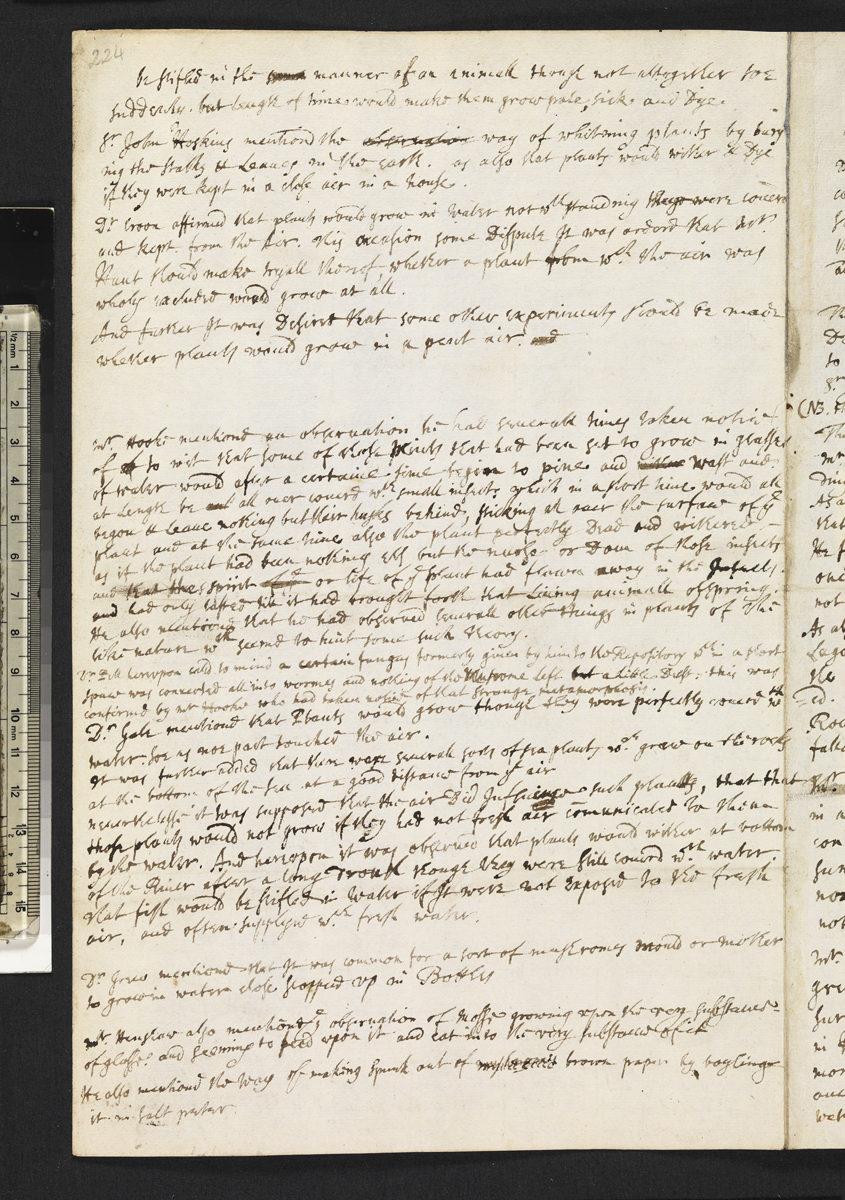 224
be stifled in the manner of an animall though not altogether soe
suddenly. but length of time would make them grow pale, sick and Dye.
Sr. John Hoskins mentiond the way of whitening plants by bury
ing the stalks & Leaves in the earth. as also that plants would wither & Dye
if they were kept in a close air in a house.
Dr. Croon affirmd that plants would grow in water notwthstanding they were coverd
and kept from the Air. this occasion some Dispute It was orderd that Mr.
Hunt should make tryall therof, whether a plant from wch. the air was
wholy excluded would grow at all.
And further It was Desired that some other experiments should be made
whether plants would grow in a pent air.
Mr. Hooke mentiond an observation he had severall times taken notice
of to wit that some of those plants that had been set to grow in glasses
of water would after a certaine time begin to pine and wast and
at Length be all over coverd wth small insects which in a short time would all
begon & Leave nothing but their husks behind, sticking all over the surface of ye
plant and at the same time also the plant perfectly Dead and withered
as if the plant had been nothing els but the nurse or Dam of those insects
and that the spirit or life of ye plant had flown away in the Insects
and had only lasted till it had brought forth that Living animall ofspring.
He also mentiond that he had observed severall other things in plants of the
like nature wch seemd to hint some such theory.
hereupon calld to mind a certain fungus formerly given by him to the Repository wch in a short
space was converted all into wormes and nothing of the Mushrome left but a little Dust: this was
confirmed by mr Hooke who had taken notice of that strange metamorphosis.
Dr. Gale mentiond that Plants would grow though they were perfectly coverd wth
water soe as noe part touched the air.
It was further added that there were severall sorts of sea plants wch. grew on the rocks
at the bottom of the sea at a good distance from ye air
neverthelesse it was supposed that the air Did Influence such plants, that that
those plants would not grow if they had not fresh air comunicated to them
by the water. And hereupon it was observed that plants would wither at bottom
of the River after a long Frost though they were still coverd wth water.
that fish would be stifled in water if It were not exposed to the fresh
air, and often supplyd wth fresh water.
Dr. Grew mentiond that It was common for a sort of mushromes mould or mother
to grow in water close stopped up in Bottles
Mr. Henshaw also mentiond ye observation of Mosse growing upon the very substance
of glasse and seeming to feed upon it and eat into the very substance of it
He also mentiond the way of making spunk out of brown paper by boyling
it in salt peter.